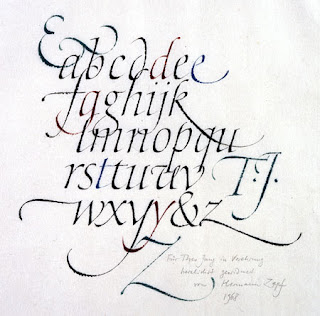 E
abcddee
fgghijk
lmnopqu
rsttuuv T.J.
wxyy&z
Z
Für Jung in Verehrung
herzlichst gewidmet
von Hermann Zapf
1968